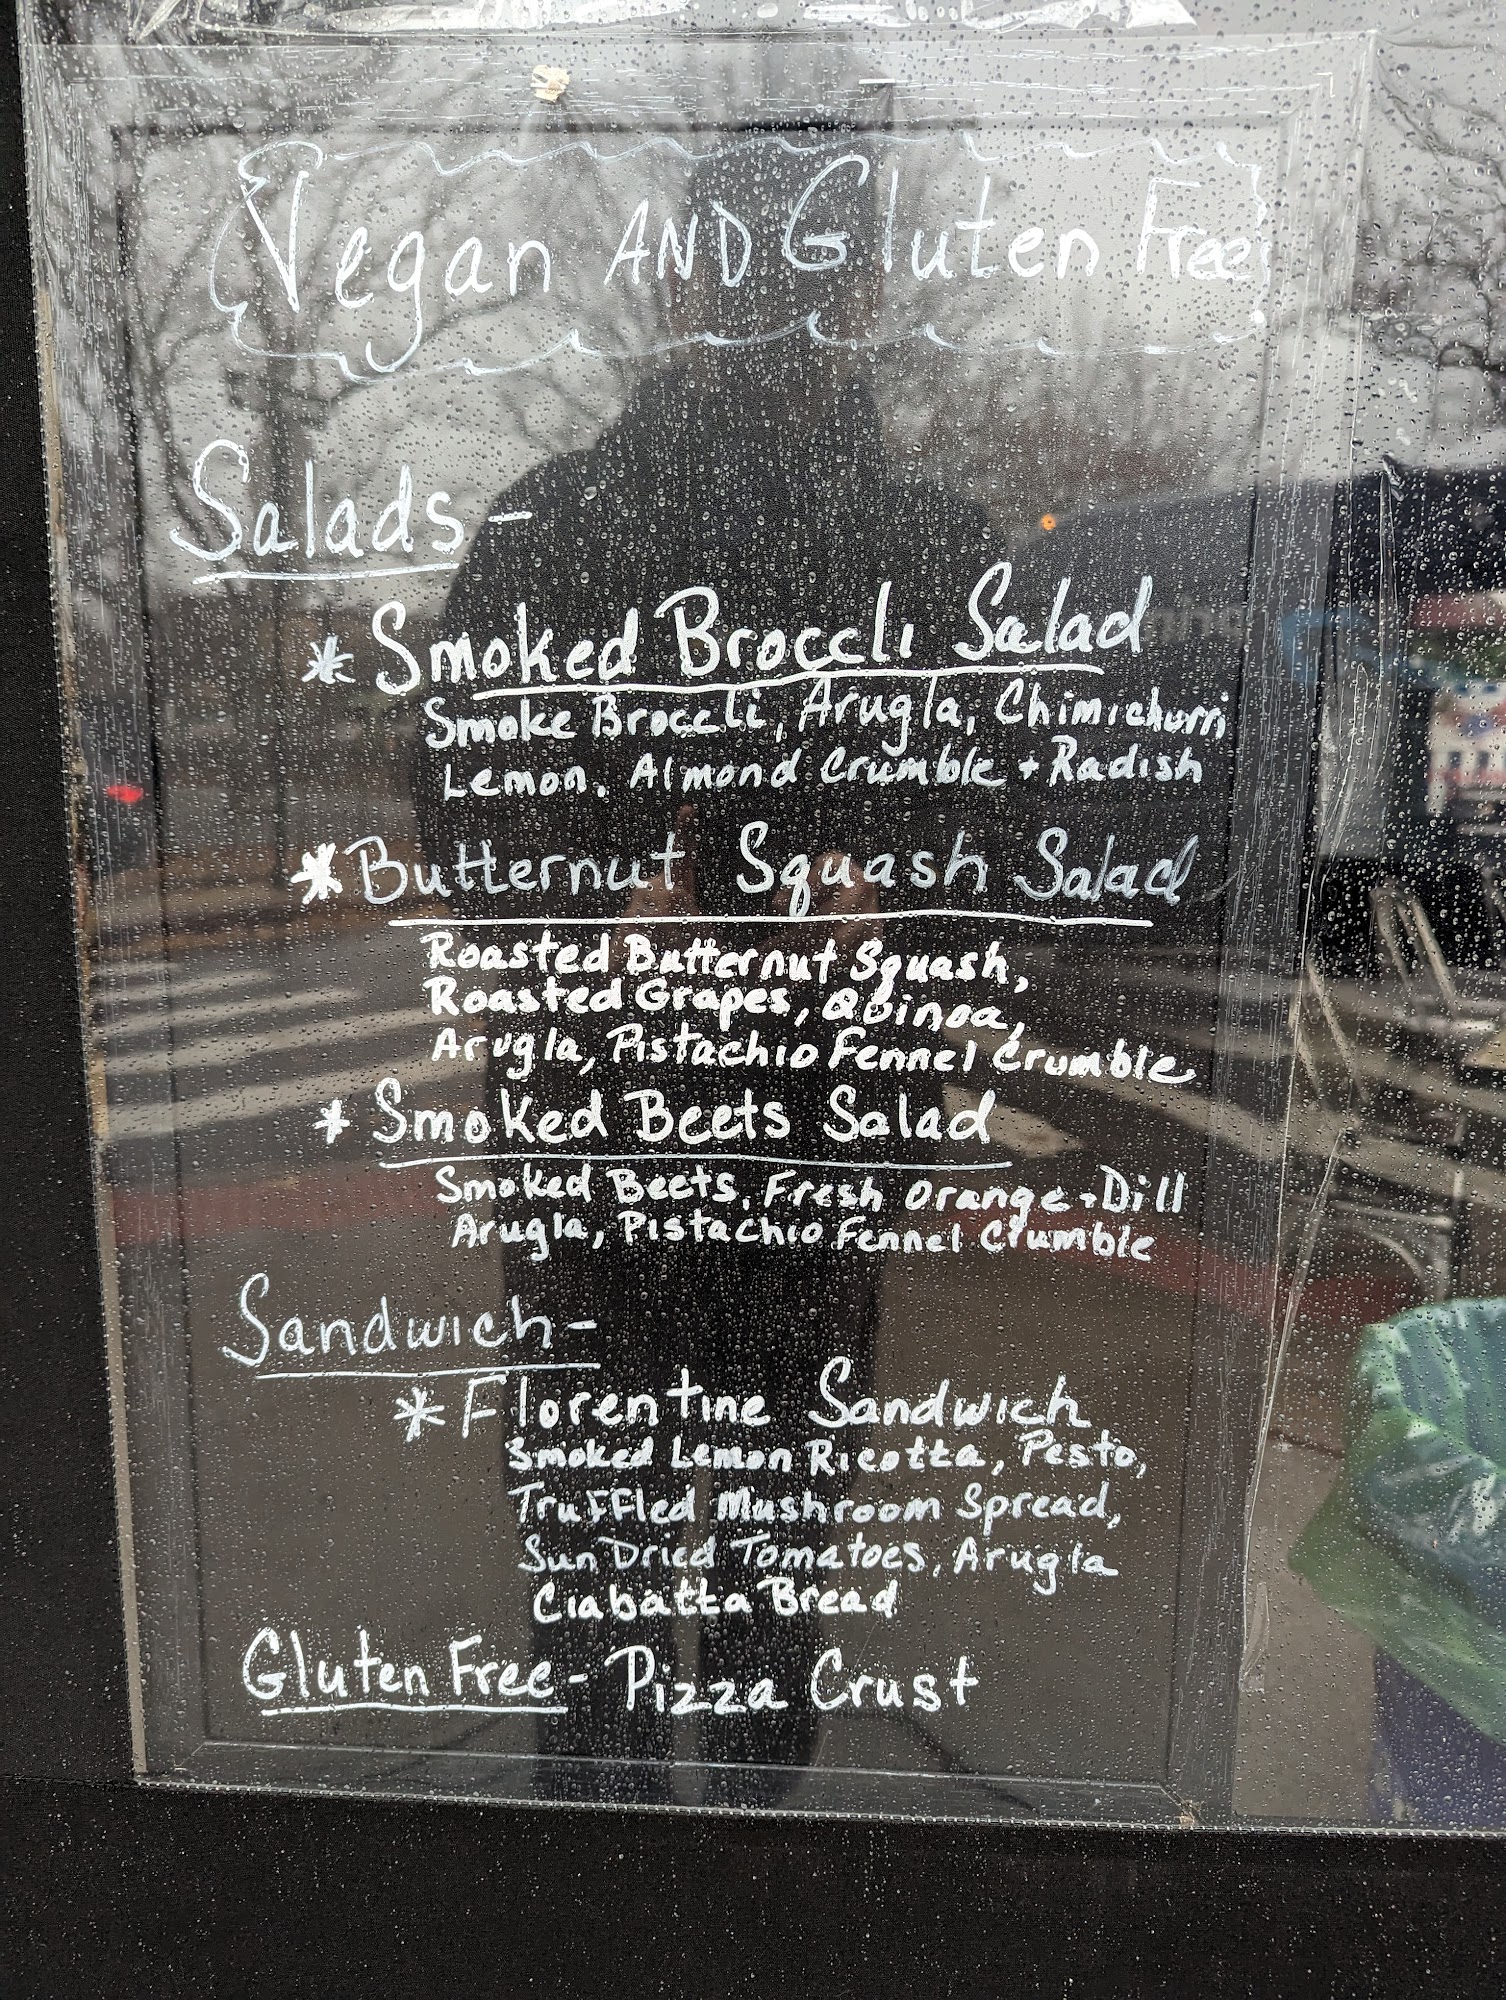 Vegan AND Gluten Free
Salads-
* Smoked Broccli Salad
Smoke Broccli, Arugla, Chimichurri
Lemon, Almond Crumble + Radish
* Butternut Squash Salad
Roasted Butternut Squash,
Roasted Grapes, Quinoa,
Arugla, Pistachio Fennel Crumble
* Smoked Beets Salad
Smoked Beets, Fresh Orange + Dill
Arugla, Pistachio Fennel Crumble
Sandwich-
* Florentine Sandwich
Smoked Lemon Ricotta, Pesto,
Truffled Mushroom Spread,
Sun Dried Tomatoes, Arugla
Ciabatta Bread
Gluten Free- Pizza Crust